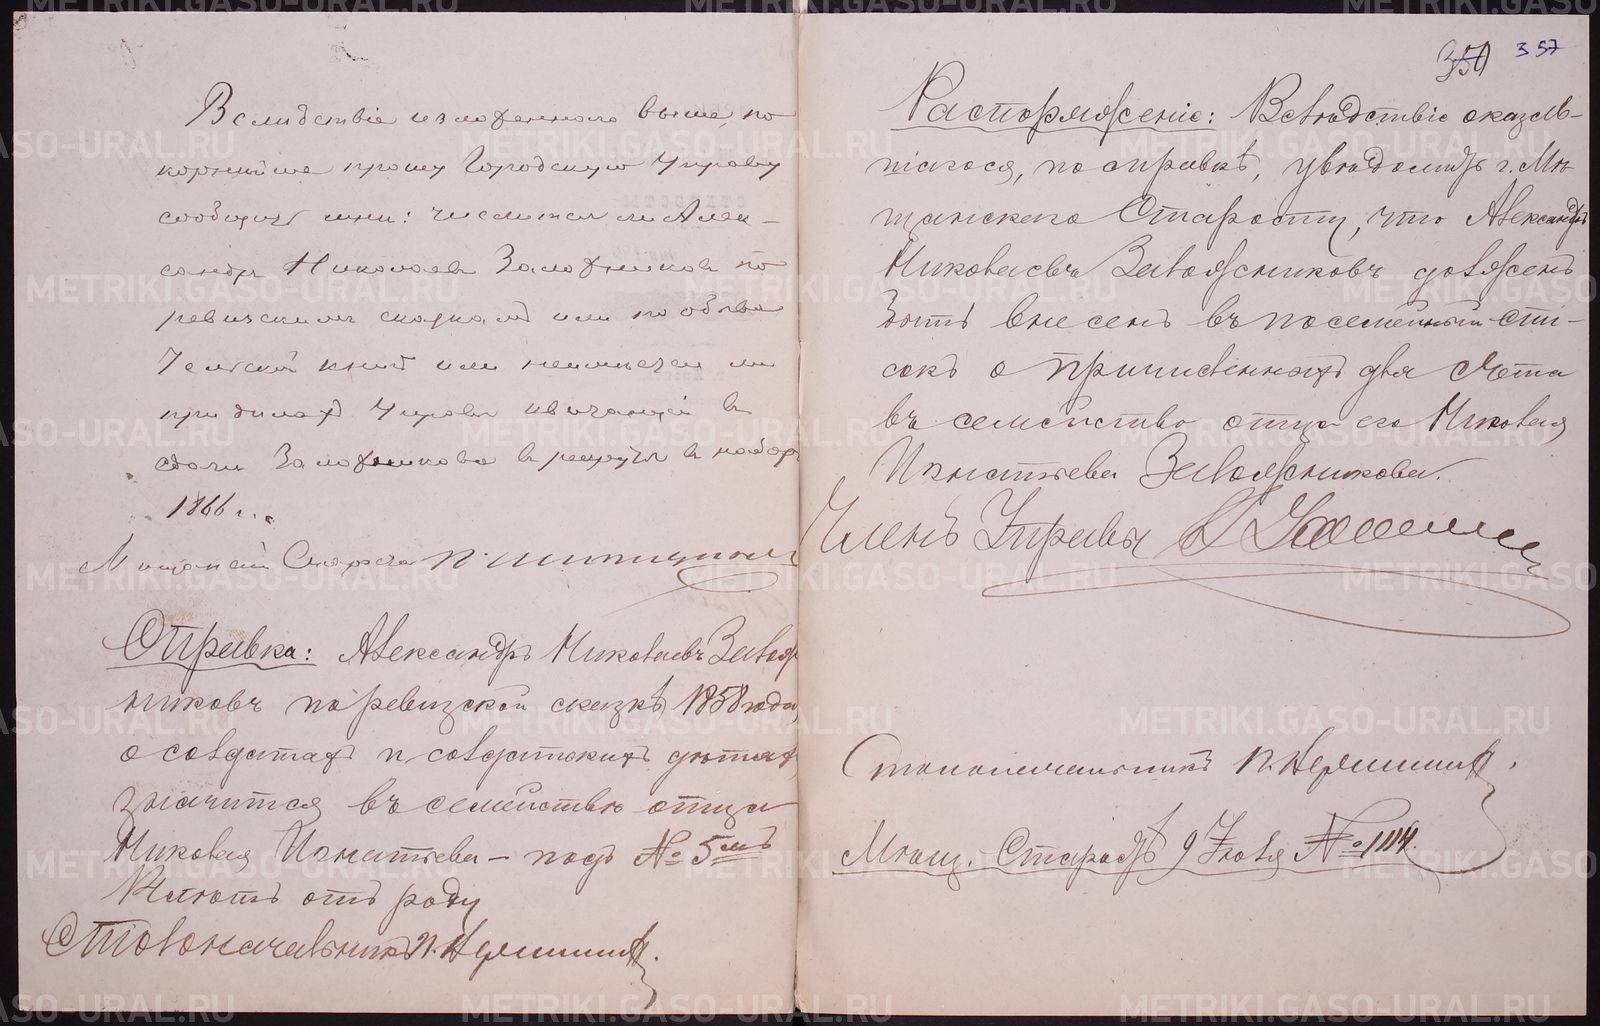 Вслидствіе изложеннаго выше, по
корнѣйше прошу Городскую Управу
сообщить мнѣ: числился ли Алек-
сандръ Николаевъ Заложниковъ по
ревизскимъ сказкамъ или по обыва
тельской книгѣ или неимѣется ли
при дѣлахъ Управы квитанціи въ
сдачи Заложникова въ рекруты въ наборъ
1866 г.
Мѣщанскій Староста П.
Справка: Александръ Николаевъ Залож
никовъ по ревизской сказкѣ 1858 года,
о солдатахъ и солдатскихъ дѣтяхъ
значится въ семействѣ отца
Николая Игнатьева – подъ № 5мъ
лѣтъ отъ роду
Столоначальникъ П.
357
Распоряженіе: Вслѣдствіе оказав-
шагося, по справкѣ, увѣдомить г. Мѣ
щанскаго Старосту, что Александръ
Николаевъ Заложниковъ долженъ
быть внесенъ въ посемейный спи-
сокъ о причисленныхъ для счета
въ семейство отца его Николая
Игнатьева Заложникова.
Членъ Управы
Столоначальникъ П.
Мѣщ. Старостѣ 9 Іюля № 1114.